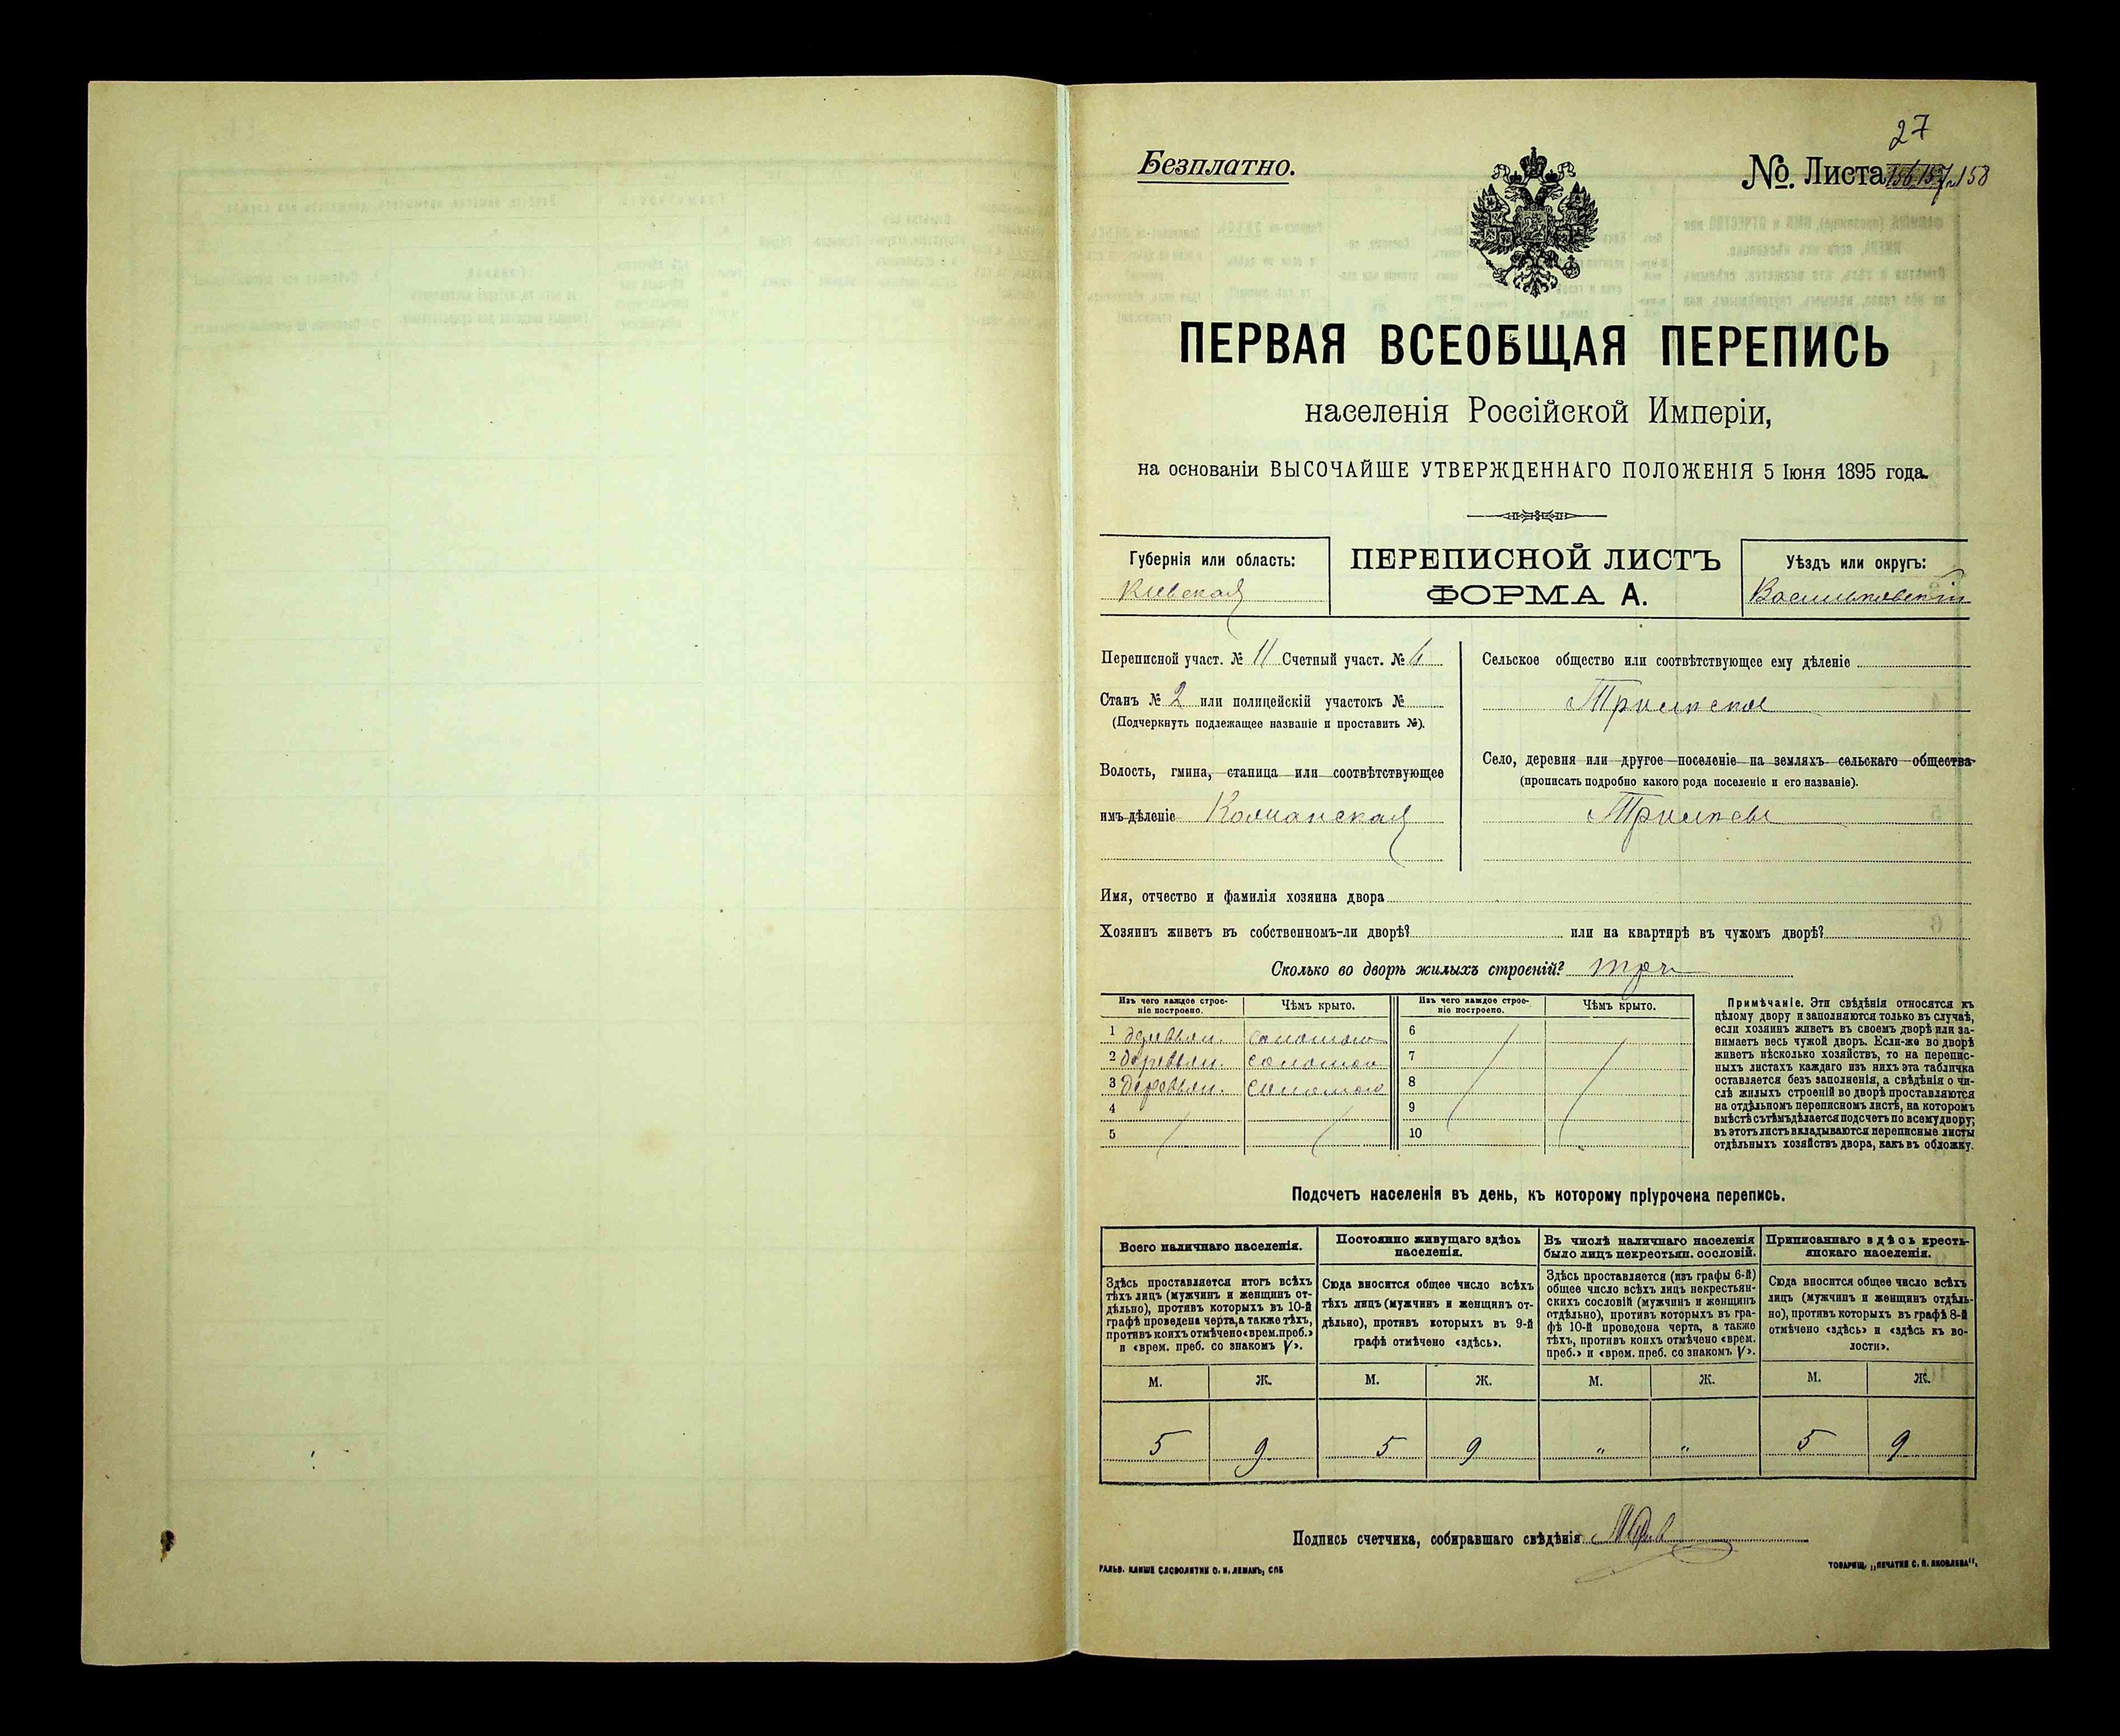 27
Безплатно.
№. Листа 156, 157, 158
ПЕРВАЯ ВСЕОБЩАЯ ПЕРЕПИСЬ
населенія Россійской Имперіи,
на основаніи ВЫСОЧАЙШЕ УТВЕРЖДЕННАГО ПОЛОЖЕНІЯ 5 Іюня 1895 года.
Губернія или область:
Кіевская
ПЕРЕПИСНОЙ ЛИСТЪ
ФОРМА А.
Уѣздъ или округъ:
Васильковскій
Переписной участ. № 11 Счетный участ. № 6
Станъ № 2 или полицейскій участокъ №
(Подчеркнуть подлежащее названіе и проставить №).
Волость, гмина, станица или соотвѣтствующее
имъ дѣленіе
Сельское общество или соотвѣтствующее ему дѣленіе
Трилѣсское
Село, деревня или другое поселеніе на земляхъ сельскаго общества
(прописать подробно какого рода поселеніе и его названіе).
Трилѣсы
Имя, отчество и фамилія хозяина двора
Хозяинъ живетъ въ собственномъ-ли дворѣ? или на квартирѣ въ чужомъ дворѣ?
Сколько во дворѣ жилыхъ строеній? три
Изъ чего каждое строе-
ніе построено.
Чѣмъ крыто.
1 деревян. соломою
2 деревян. соломою
3 деревян. соломою
4
5
Изъ чего каждое строе-
ніе построено.
Чѣмъ крыто.
6
7
8
9
10
Примѣчаніе. Эти свѣдѣнія относятся къ
цѣлому двору и заполняются только въ случаѣ,
если хозяинъ живетъ въ своемъ дворѣ или за-
нимаетъ весь чужой дворъ. Если-же во дворѣ
живетъ нѣсколько хозяйствъ, то на перепис-
ныхъ листахъ каждаго изъ нихъ эта табличка
оставляется безъ заполненія, а свѣдѣнія о чи-
слѣ жилыхъ строеній во дворѣ проставляются
на отдѣльномъ переписномъ листѣ, на которомъ
вмѣстѣ съ тѣмъ дѣлается подсчетъ по всему двору;
въ этотъ листъ вкладываются переписные листы
отдѣльныхъ хозяйствъ двора, какъ въ обложку.
Подсчетъ населенія въ день, къ которому пріурочена перепись.
Всего наличнаго населенія.
Здѣсь проставляется итогъ всѣхъ
тѣхъ лицъ (мужчинъ и женщинъ от-
дѣльно), противъ которыхъ въ 10-й
графѣ проведена черта, а также тѣхъ,
противъ коихъ отмѣчено «врем. преб.»
и «врем. преб. со знакомъ V».
М. Ж.
5 9
Постоянно живущаго здѣсь
населенія.
Сюда вносится общее число всѣхъ
тѣхъ лицъ (мужчинъ и женщинъ от-
дѣльно), противъ которыхъ въ 9-й
графѣ отмѣчено «здѣсь».
М. Ж.
5 9
Въ числѣ наличнаго населенія
было лицъ некрестьян. сословій.
Здѣсь проставляется (изъ графы 6-й)
общее число всѣхъ лицъ некрестьян-
скихъ сословій (мужчинъ и женщинъ
отдѣльно), противъ которыхъ въ гра-
фѣ 10-й проведена черта, а также
тѣхъ, противъ коихъ отмѣчено «врем.
преб.» и «врем. преб. со знакомъ V».
М. Ж.
" "
Приписаннаго здѣсь кресть-
янскаго населенія.
Сюда вносится общее число всѣхъ
лицъ (мужчинъ и женщинъ отдѣль-
но), противъ которыхъ въ графѣ 8-й
отмѣчено «здѣсь» и «здѣсь къ во-
лости».
М. Ж.
5 9
Подпись счетчика, собиравшаго свѣдѣнія
ГАЛЬВ. КЛИШЕ СЛОВОЛИТНИ О. И. ЛЕМАНЪ, СПБ
ТОВАРИЩ. „ПЕЧАТНЯ С. П. ЯКОВЛЕВА“.